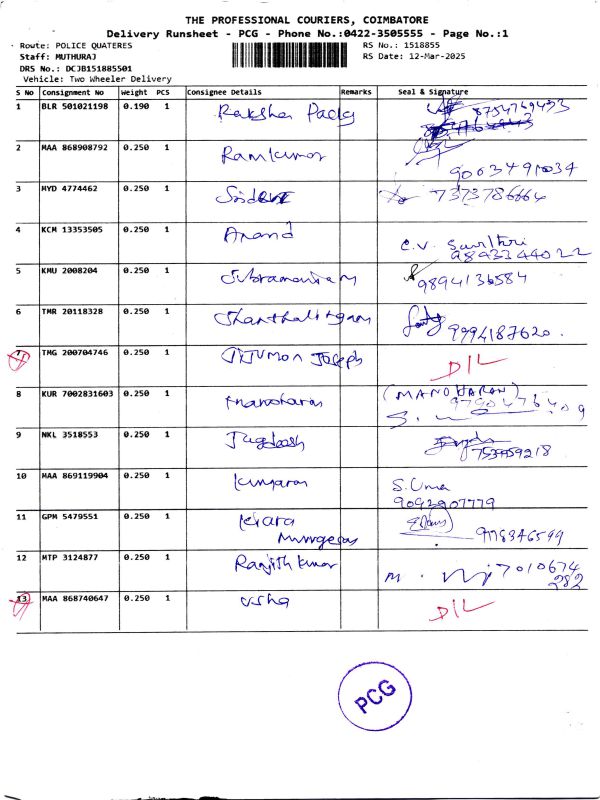 THE PROFESSIONAL COURIERS, COIMBATORE
Delivery Runsheet - PCG - Phone No.:0422-3505555 - Page No.:1
Route: POLICE QUATERES RS No.: 1518855
Staff: MUTHURAJ RS Date: 12-Mar-2025
DRS No.: DCJB151885501
Vehicle: Two Wheeler Delivery
S No Consignment No Weight PCS Consignee Details Remarks Seal & Signature
1 BLR 501021198 0.190 1 Raksha Pady 8754769433
2 MAA 868908792 0.250 1 Ramkumar
9003491034
3 MYD 4774462 0.250 1 7373786664
4 KCM 13353505 0.250 1 Anand
C.V. Savithri
9893344022
5 KMU 2008204 0.250 1 Subramaniam 9894136584
6 TMR 20118328 0.250 1 9994187620.
7 TMG 200704746 0.250 1 JIJUMON Joseph D/L
8 KUR 7002831603 0.250 1 Manoharan (MANOHARAN)
9790476409
9 NKL 3518553 0.250 1 Jagdeesh
10 MAA 869119904 0.250 1 Kumaran S. Uma
9092907779
11 GPM 5479551 0.250 1 Kiara
Murugesan 9778346599
12 MTP 3124877 0.250 1 Ranjith Kumar M. 7010674
282
13 MAA 868740647 0.250 1 Usha D/L
PCG